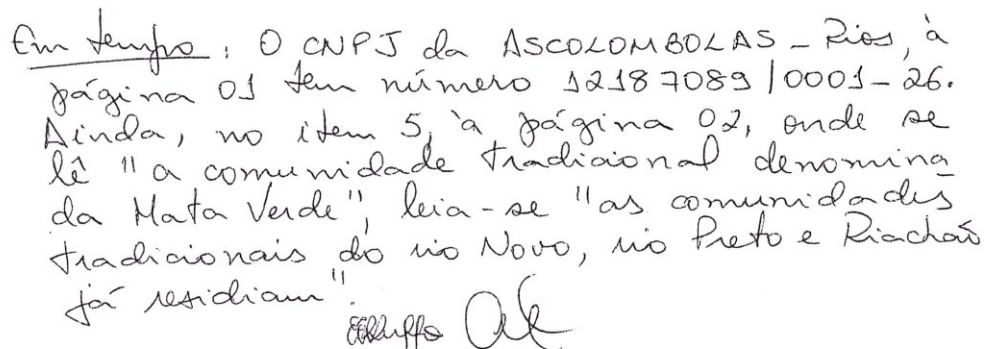 Em tempo: O CNPJ da ASCOLOMBOLAS - Rios, à
página 01 tem número 12187089/0001-26.
Ainda, no item 5, à página 02, onde se
lê "a comunidade tradicional denomina
da Mata Verde", leia-se "as comunidades
tradicionais do rio Novo, rio Preto e Riachão
já residiam".